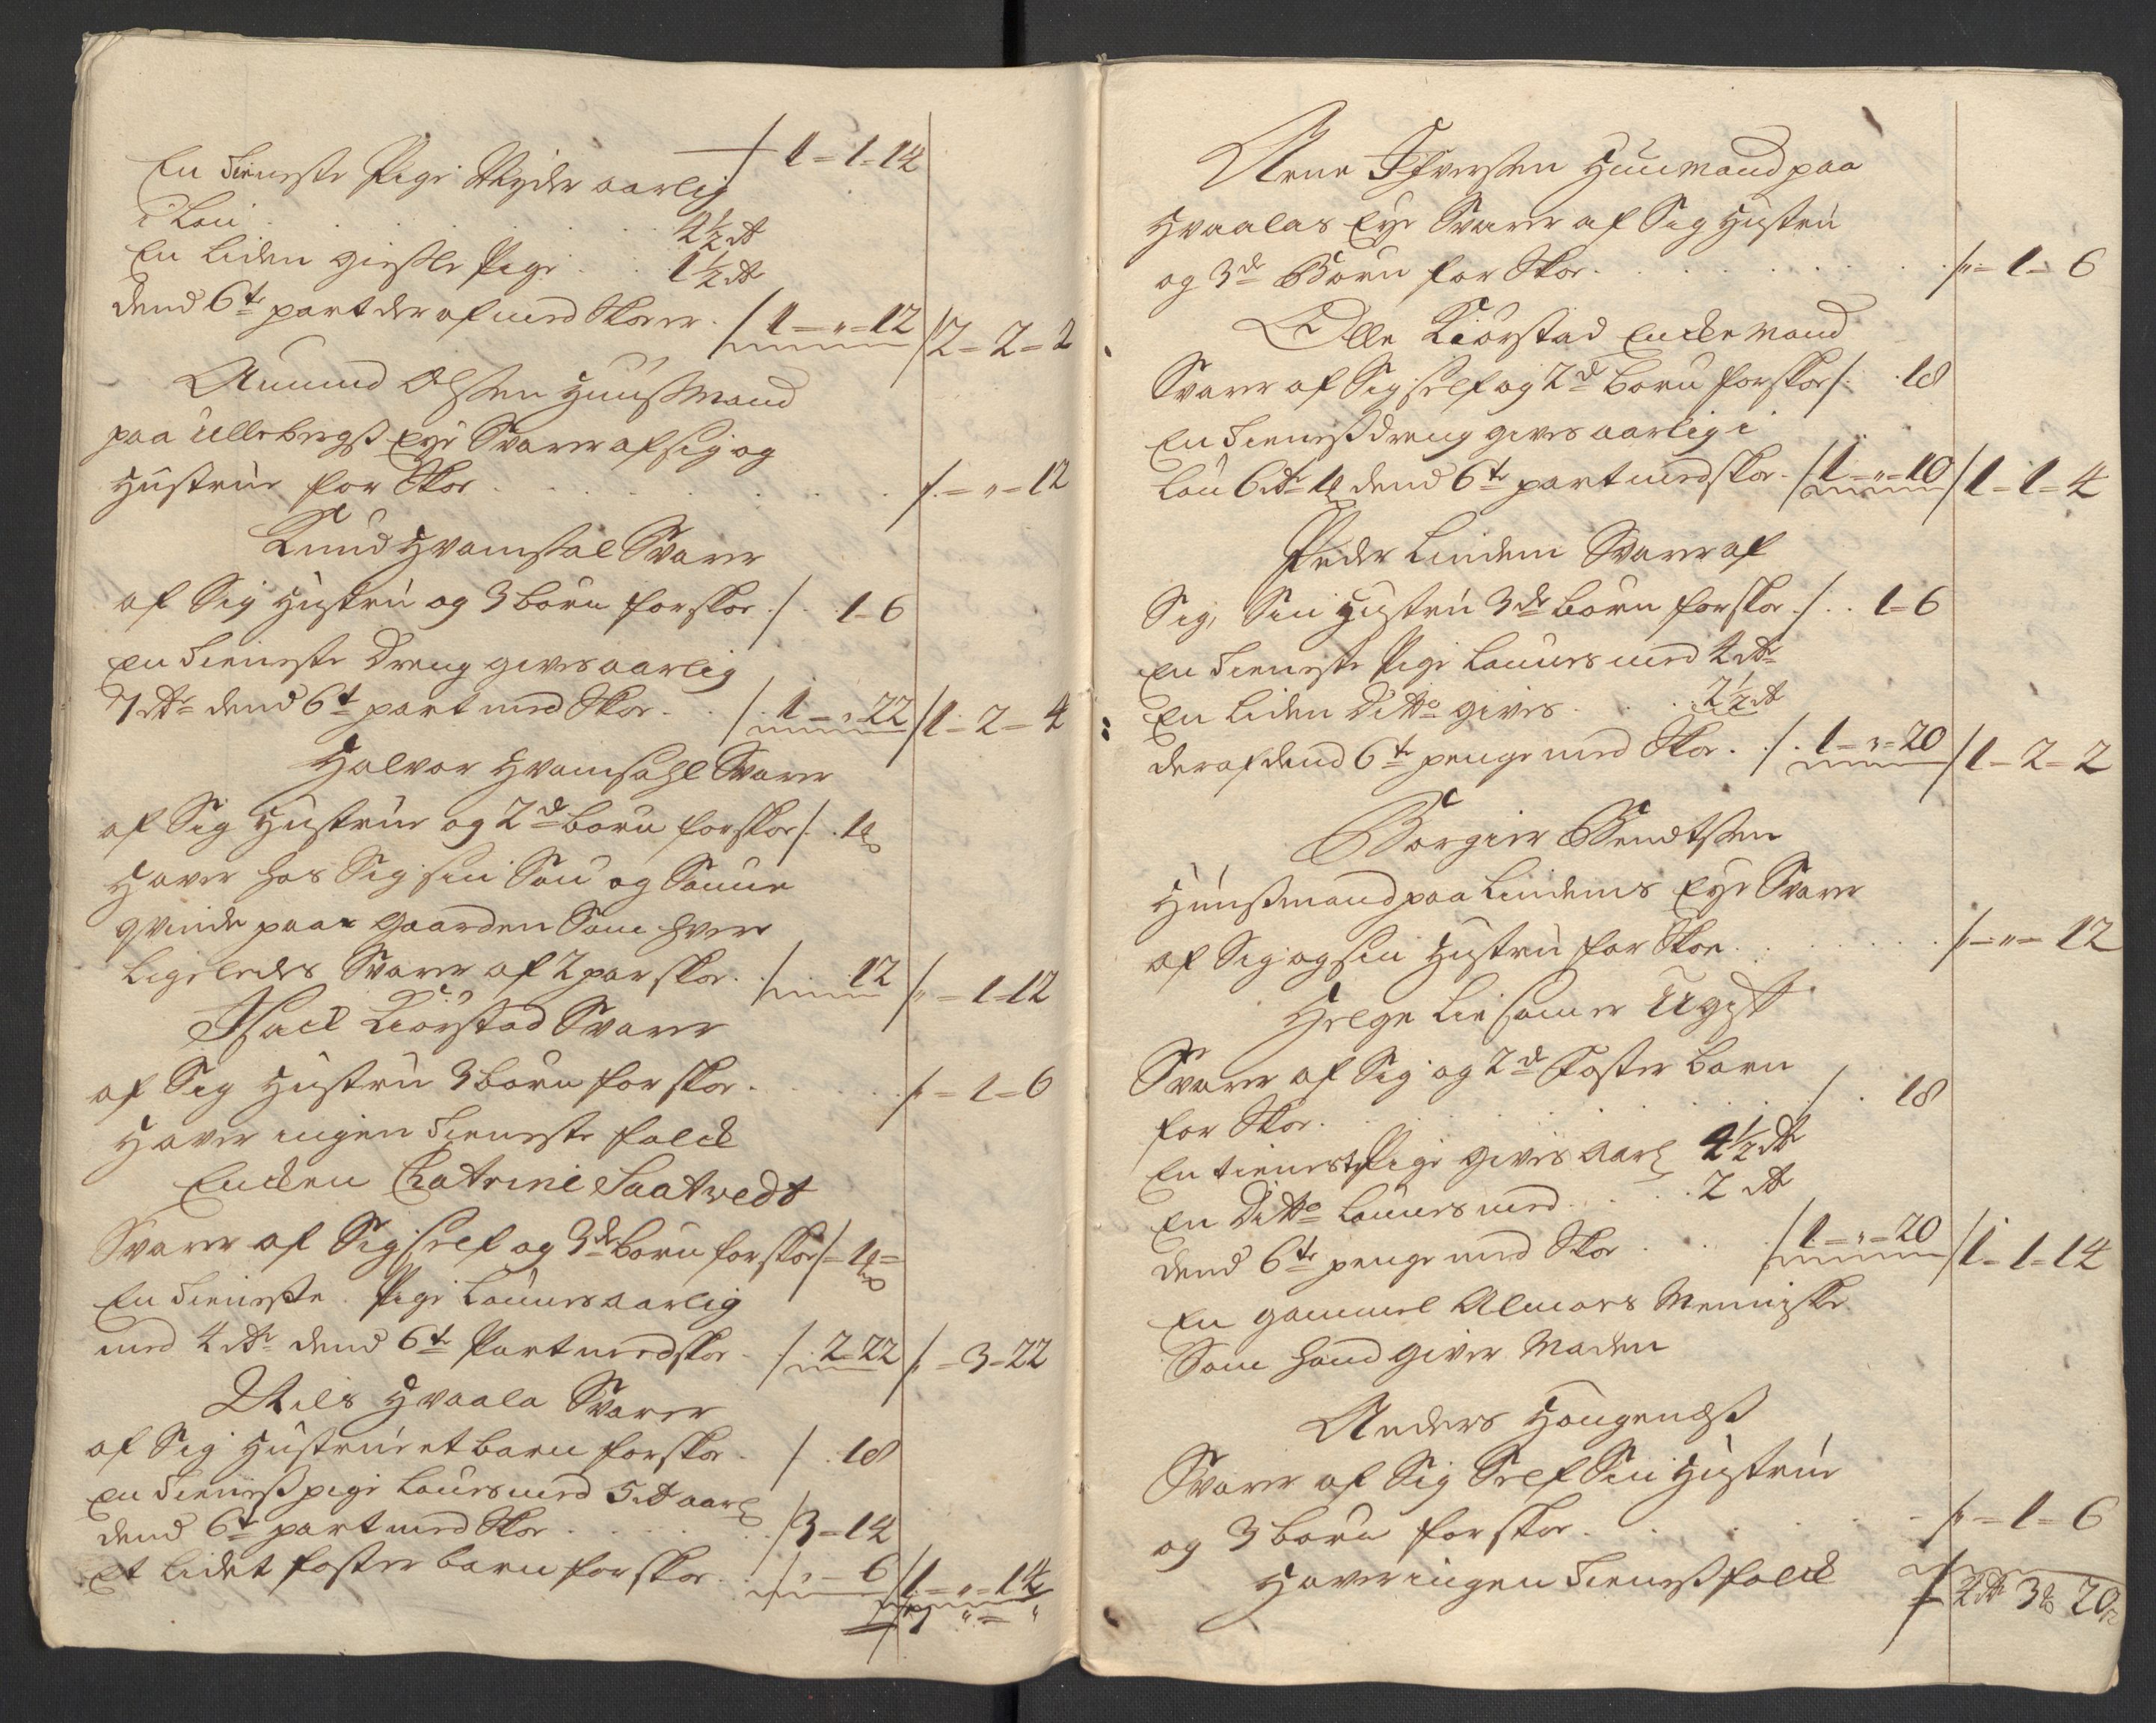 / 1 = 1 = 14
En tieneste Pige Nyder aarlig
i Løn . . . . . 4½ rdr
En liden giesle Pige . . 1½ rdr
dend 6te part der af med Skoer . / 1 = " = 12 / 2 = 2 = 2
Amund Olßen Huußmand
paa Ullebergs Eye Svarer af sig og
Hustrue for Skoe . . . . . . / = " = 12
Knud Hvamsal Svarer
af Sig Hustrü og 3 børn for skoe / . 1 = 6
En tieneste Dreng gives aarlig
7 rdr dend 6te part med Skoe . / 1 = " 22 / 1 = 2 = 4
Halvor Hvamsahl Svarer
af Sig Hustrue og 2de børn for skoe / . 1
Haver hos Sig sin Søn og Sønne
qvinde paa Gaarden Som hver
ligeledes Svarer af 2 par skoe . / . . 12 / " = 1 = 12
Isack Kiørstad Svarer
af Sig Hustrü 3 børn for skoe . . . / " = 1 = 6
Haver ingen tieneste folck
Encken Catrine Saatvedt
Svarer af Sig self og 3de børn for skoe / = 1 =
En tieneste Pige lønnes aarlig
med 4 rdr dend 6te Part med skoe . / 2 = 22 / " = 3 = 22
Nils Hvaala Svarer
af Sig Hustrue et barn for skoe . / . 18
En tienest pige lønes med 5 rdr aarl
dend 6te part med Skoe . . . . / 3 = 14
Et lidet foster barn for skoe . . / " = 6 / 1 = " = 14
7 " = "
Arne Ifversen Huusmand paa
Hvaalas Eye Svarer af Sig Hustrü
og 3de Børn for Skoe . . . . . / " = 1 = 6
Olle Kiørstad Enckemand
Svarer af Sig self og 2de børn for skoe / . 18
En tienestdreng gives aarlig i
løn 6 rdr 1 dend 6te part med skoe . / 1 = " = 10 / 1 = 1 = 4
Peder Lindem Svarer af
Sig, Sin Hustrü 3de børn for skoe . / . . 1 = 6
En tieneste Pige lønnes med 4 rdr
En liden Ditto gives . . . 2½ rdr
der af dend 6te penge med Skoe . . / . 1 = " = 20 / 1 = 2 = 2
Børgier Bendtsen
Huußmand paa Lindems Eye Svarer
af Sig og sin Hustrü for Skoe . . . . / = " = 12
Helge Lie som er Ugift
Svarer af Sig og 2de Foster børn
for Skoe . . . . . . / . 18
En tieneste Pige gives aarl 4½ rdr
En Ditto lønnes med . . . 2 rdr
dend 6te penge med Skoe . . . / 1 = " = 20 / 1 = 1 = 14
En gammel Almues Menniske
Som hand giver Maden
Anders Haugenæß
Svarer af Sig Self Sin Hustrue
og 3 børn for skoe . . . . . / " = 1 = 6
Haver ingen tienestfolck / 4 rdr 3 20